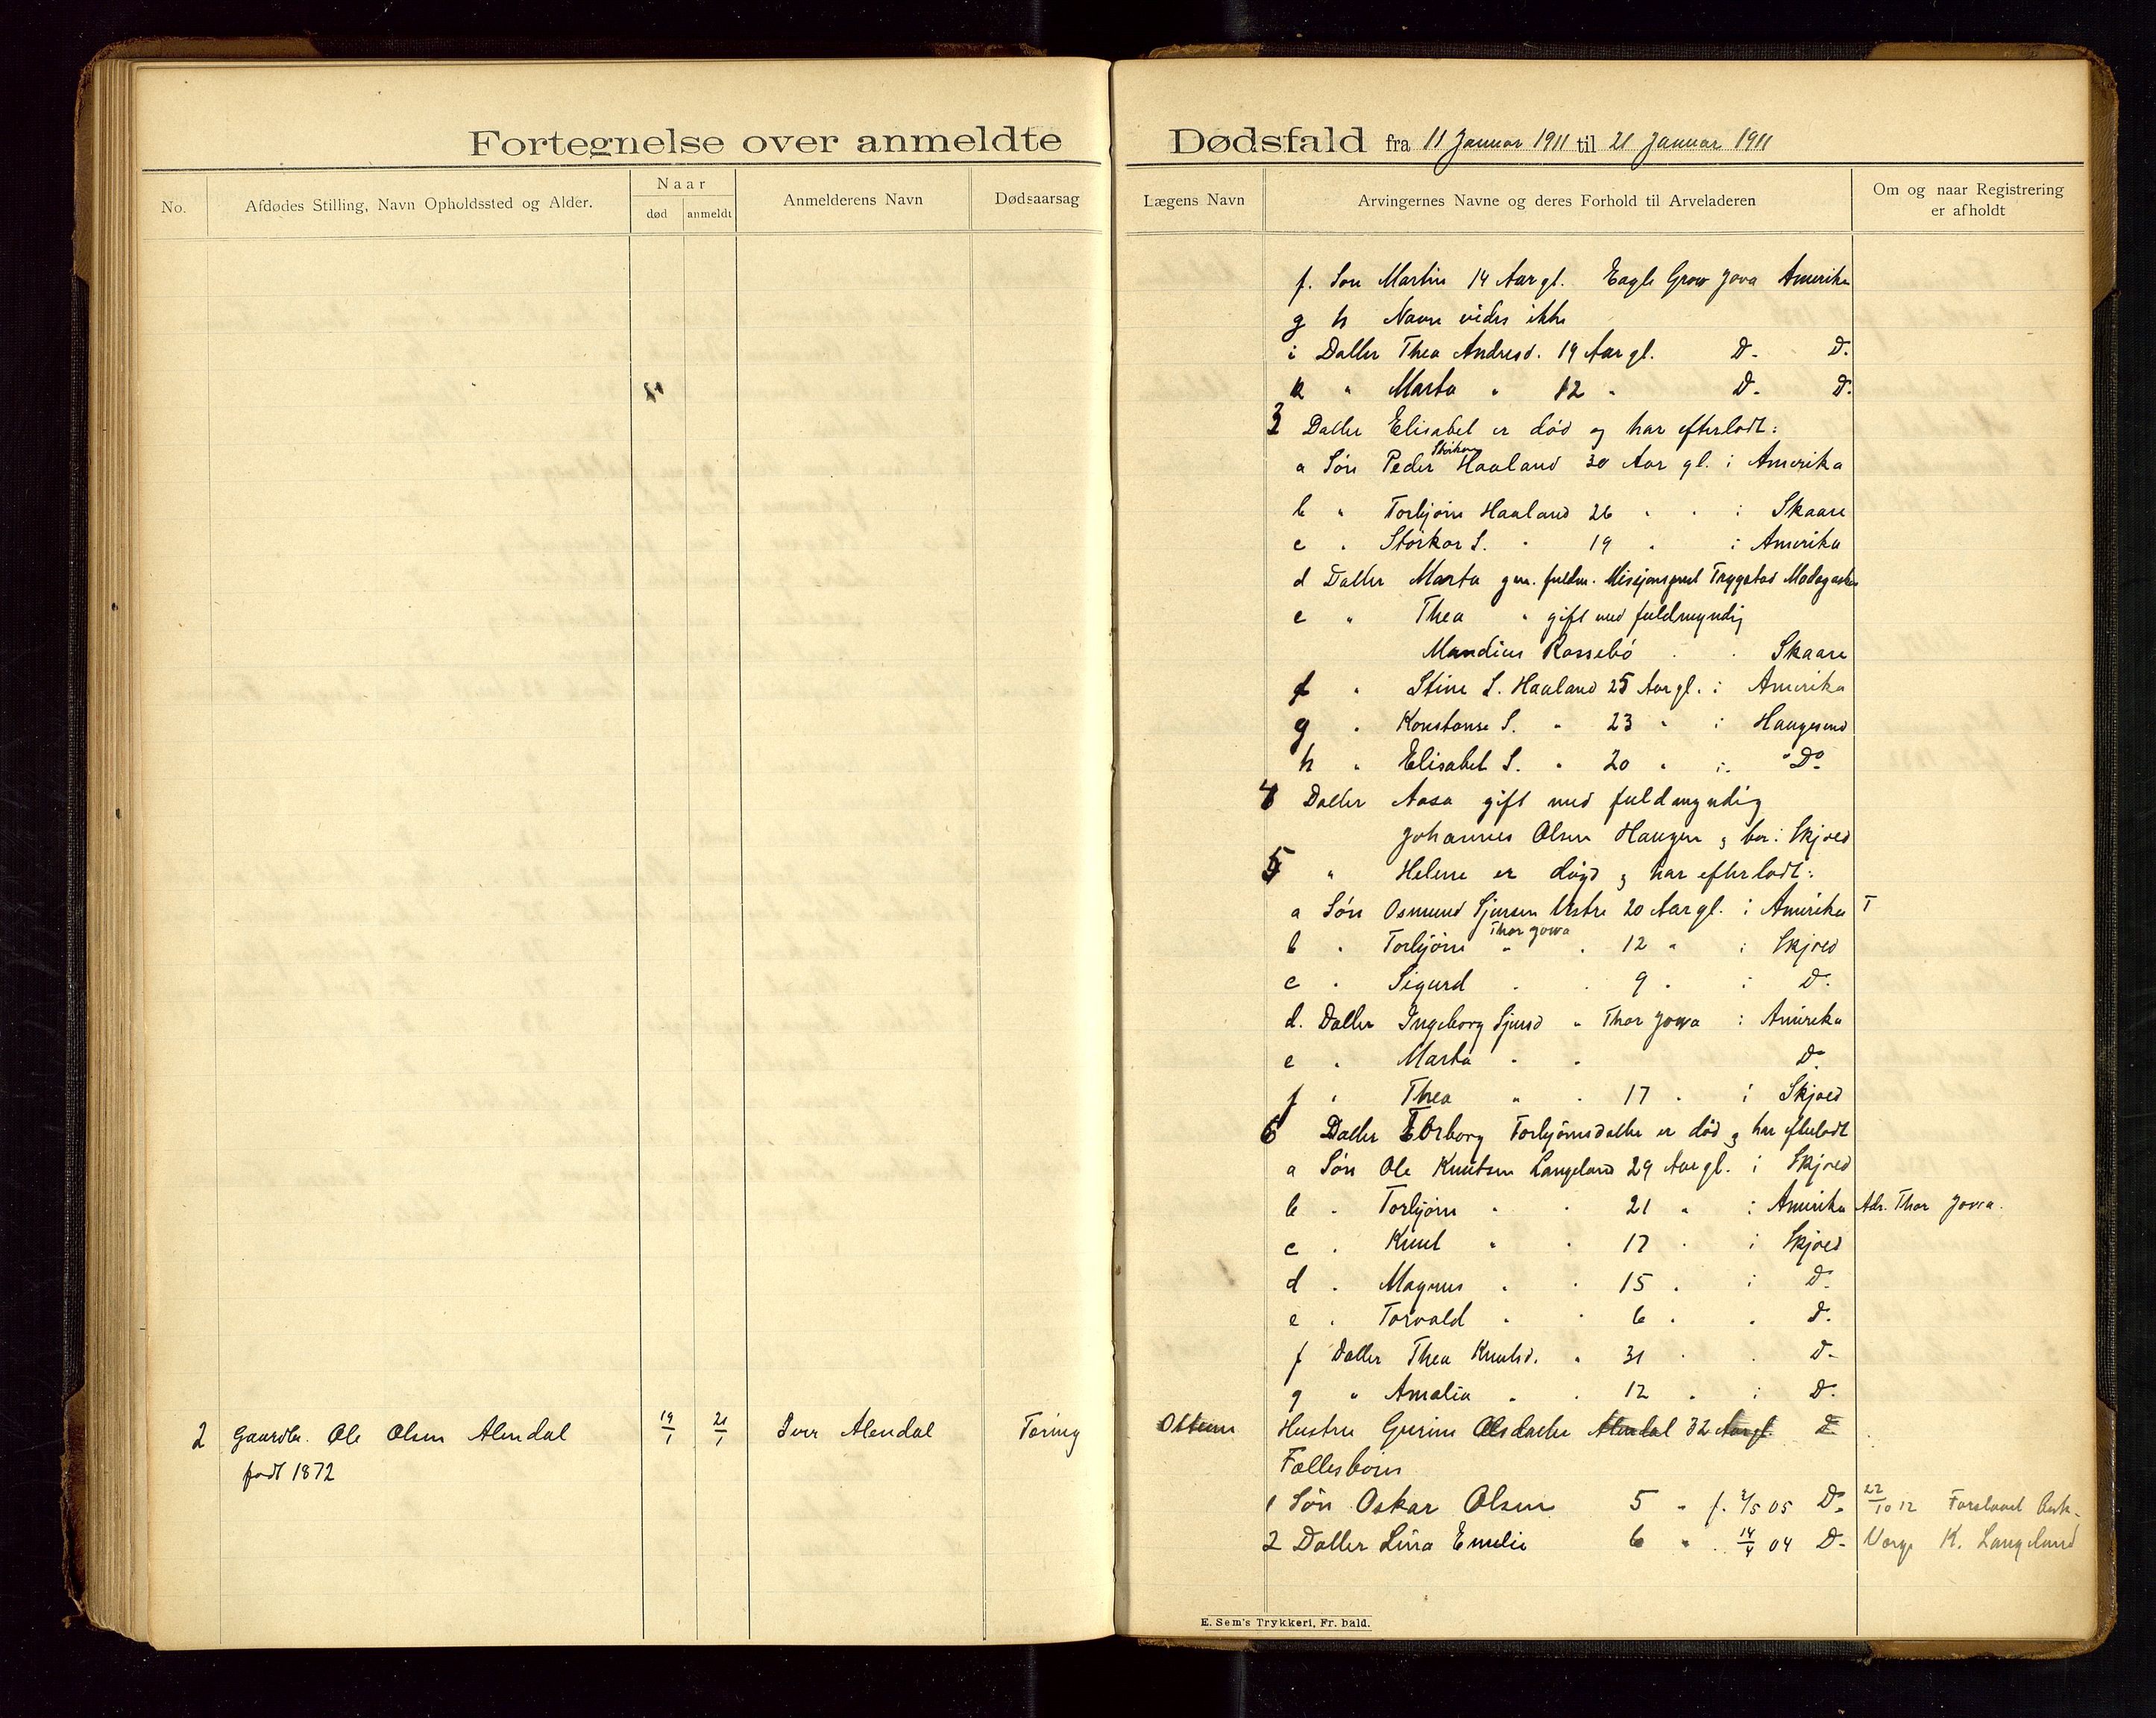 Fortegnelse over anmeldte
No.
Afdødes Stilling, Navn Opholdssted og Alder.
Naar
død
anmeldt
Anmelderens Navn
Dødsaarsag
2 Gaardbr. Ole Olsen Alendal 19/1 21/1 Iver Alendal Tæring
født 1872
Dødsfald fra 11 Januar 1911 til 21 Januar 1911
Lægens Navn
Arvingernes Navne og deres Forhold til Arveladeren
Om og naar Registrering
er afholdt
f. Søn Martin 14 Aar gl. Eagle Grow Jova Amerika
g h Navn vides ikke
i Datter Thea Andresd. 19 Aar gl. Do Do
k " Marta " 12 " Do Do
3 Datter Elisabet er død og har efterladt:
Storkors
a Søn Peder Haaland 30 Aar gl. i Amerika
b " Torbjørn Haaland 26 " " i Skaare
c " Storkor S. " 19 " i Amerika
d Datter Marta gm. fuldm. Misjonsprest Trygstad Madagaskar
e " Thea " gift med fuldmyndig
Mandius Rossebø " " Skaare
f " Stine S. Haaland 25 Aar gl. i Amerika
g " Konstanse S. " 23 " i Haugesund
h " Elisabet S. " 20 " i " Do
4 Datter Aasa gift med fuldmyndig
Johannes Olsen Haugen og bor i Skjold
5 " Helene er død og har efterladt:
a Søn Osmund Sjursen 20 Aar gl. i Amerika T
Thor Jowa
b " Torbjørn " " 12 " i Skjold
c " Sigurd " " 9 " i Do
d. Datter Ingeborg Sjursd " Thor Jowa i Amerika
e " Marta " " Do
f " Thea " " 17 " i Skjold
6 Datter Torborg Torbjørnsdatter er død og har efterladt
a Søn Ole Knutsen Langeland 29 Aar gl. i Skjold
b " Torbjørn " " 21 " i Amerika Adr. Thor Jowa.
c " Knut " " 17 " i Skjold
d " Magnus " " 15 " i Do
e " Torvald " " 6 " " Do
f Datter Thea Knutsd. " 31 " " Do
g " Amalia " " 12 " i Do
Ottem Hustru Gurine Olsdatter Alendal 32 Aar gl. Do
Fællesbørn
1 Søn Oskar Olsen 5 " f. 2/5 05 Do 22/10 12
2 Datter Lina Emilie 6 " " 14/4 04 Do Verge K. Langeland
E. Sem's Trykkeri, Fr. hald.